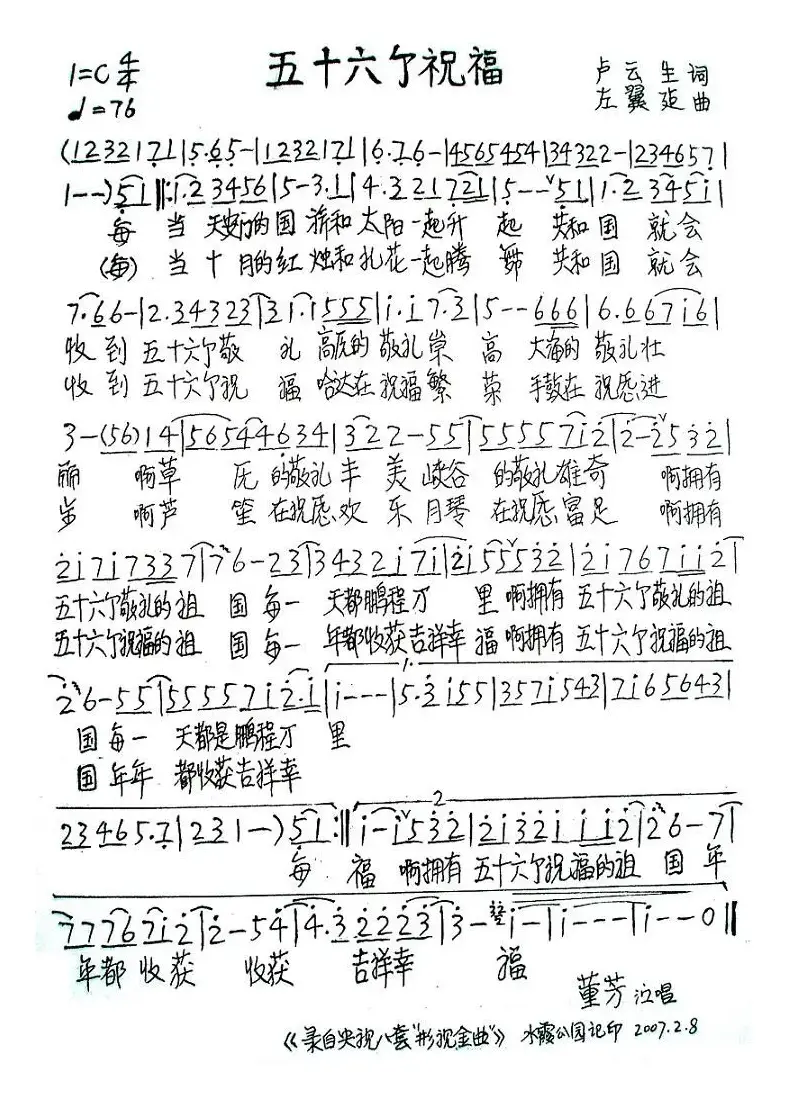 五十六个祝福
1=C 4/4
♩=76
卢云生 词
左翼建 曲
(123217|5·65-|123217|6·76-|4565454|34322-|234657|
1--)51‖:1·23456|5-3·1|4·321721|5---51|1·23451|
每 当 天安门的国 旗和太阳一起升 起 共和国 就会
(每) 当 十月的红 烛和礼花一起腾 舞 共和国 就会
7·66-|2·34323|31·1555|1·17·3|5--666|6·66716|
收到 五十六个敬 礼 高原的敬礼崇 高 大海的敬礼壮
收到 五十六个祝 福 哈达在祝福繁 荣 手鼓在祝愿进
3-(56)14|56544634|322-55|5555712|2-2532|
丽 啊草 原 的敬礼丰 美 峡谷 的敬礼雄奇 啊拥有
步 啊芦 笙 在祝愿欢 乐 月琴 在祝愿富足 啊拥有
21717337|76-23|3432171|2155532|21767112|
五十六个敬礼的祖 国 每一 天都鹏程万 里 啊拥有 五十六个敬礼的祖
五十六个祝福的祖 国 每一 年都收获吉祥幸 福 啊拥有 五十六个祝福的祖
26-55|55557121|1---|5·3155|3571543|7165643|
国 每一 天都是鹏程万 里
国 年年 都收获吉祥幸
23465·7|231--)51:‖1-1532|21321112|26-7|
每 福 啊拥有 五十六个祝福的祖 国 年
7776712|2-54|4·32223|3-1-|1---|1--0‖
年都 收获 收获 吉祥幸 福
董芳 泣唱
《录自央视八套"影视金曲"》 水霞公园记印 2007.2.8